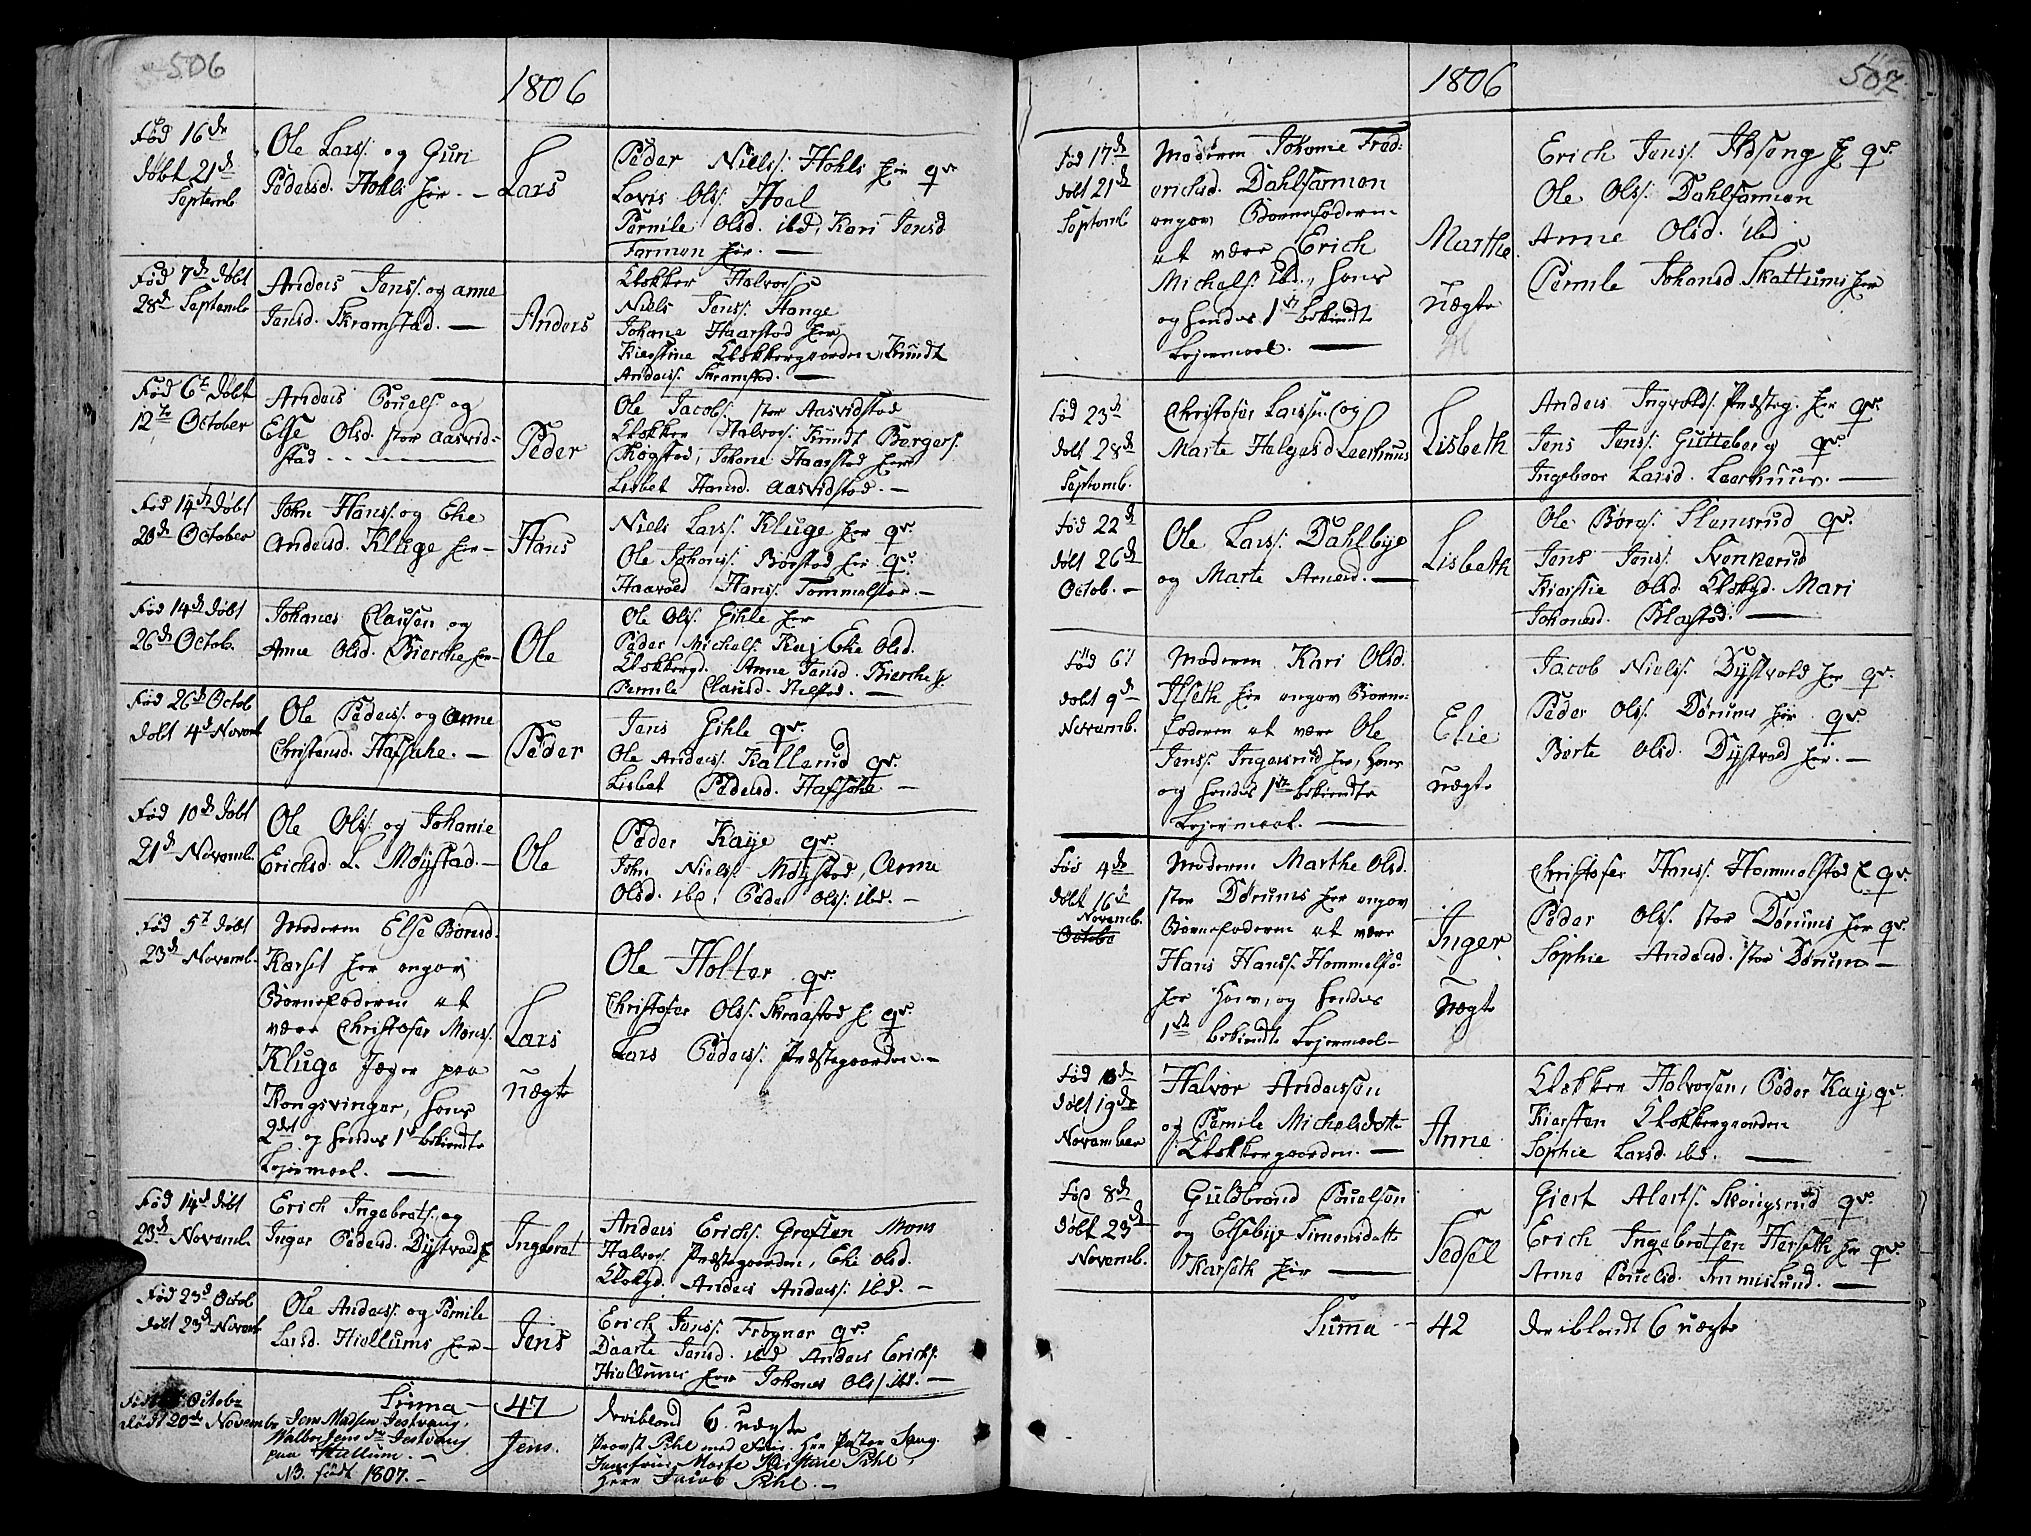 506
1806
Fød 16de
døbt 21d
Septemb
Ole Larss. og Guri
Pedersd. Hohls her. -
Lars
Peder Nielss. Hohls her qv.
Lovis Olss. Hoel
Pernile Olsd. ibd, Kari Jensd
Farmen her. -
Fød 7de døbt
28d Septemb
Anders Jenss. og Anne
Jensd. Skramstad. -
Anders
Klokker Halvors.
Niels Jenss. Stange
Johane Haarstad her
Kierstine Klokkergaarden, Knudt
Anderss. Skramstad. -
Fød 6t døbt
12te October
Anders Pouels. og
Else Olsd. stor Aasvid-
stad - - - - -
Peder
Ole Jacobs. stor Aasvidstad
Klokker Halvors. Knudt Borgers.
Kogstad, Johane Haarstad her
Lisbet Hansd. Aasvidstad. -
Fød 14de døbt
20de October
John Hanss. og Elie
Andersd. Kluge her -
Hans
Niels Larss. Kluge her qv.
Ole Johans. Børstad her qv.
Haavold Hanss. Tommelstad. -
Fød 14de døbt
26de Octob.
Johanes Clausen og
Anne Olsd. Bierche her
Ole
Ole Olss. Gihle her
Peder Michels. Kaj Elie Olsd.
Klokkergd. Anne Jensd. Bierche h.
Pernile Clausd. Stelstad. -
Fød 26de Octob
døbt 4d Novemb
Ole Pederss. og Anne
Christensd. Hafsahe. -
Peder
Jens Gihle qv.
Ole Anderss. Kallerud qv.
Lisbet Pedersd. Hafsahe. -
Fød 10de døbt
21d Novemb.
Ole Olss. og Johanie
Erichsd. L. Møystad. -
Ole
Peder Kaye qv.
John Nielss. Møystad, Anne
Olsd. ibd, Peder Olss. ibd. -
Fød 5t døbt
23d Novemb.
Moderen Else Børresd.
Karset her angav
Barnefaderen at
være Christofer Monss.
Kluge Jæger paa
Kongsvinger, hans
2det og hendes 1ste bekiendte
Lejermaal. -
Lars
uægte
Ole Holter qv.
Christofer Olss. Skraastad h qv.
Lars Pederss. Præstegaarden. -
Fød 14d døbt
23d Novemb.
Erich Ingebrets. og
Inger Pedersd. Dystvold h
Ingebret
Anders Erichs. Grøften Mons
Halvors. Præstegaarden, Elie Olsd.
Klokgd. Anders Anderss. ibd. -
Fød 23d Octob
døbt 23d Novemb
Ole Anderss. og Pernile
Larsd. Hiellums her -
Jens
Erich Jenss. Frogner qv.
Daarte Jensd. ibd Anders Erichs.
Hiellums her Johanes Olss. ibd. -
Summa - 47 deriblond 6 uægte
Octobr
døbt 20de Novembr
Jens Madsen Jestvang,
Valbor Jensdr Jestvang
paa Hallum. -
NB. født 1807. -
Jens.
Provst Pihl med Frue. Her Pastor Sang.
Jomfrue Marte Kirstine Pihl
Herr Jacob Pihl. -
507
1806
Fød 17de
døbt 21de
Septemb
Moderen Johanne Fred-
erichsd. Dahlfarmen
angav Barnefaderen
at være Erich
Michels. ibd., hans
og hendes 1ste bekiendte
Lejermaal. -
Marthe
uægte
Erich Jenss. Idseng h qv.
Ole Olss. Dahlfarmen
Anne Olsd. ibd
Pernile Johansd. Skattums her
Fød 23d
døbt 28d
Septemb.
Christofer Larssen og
Marte Helgesd Leerhuus
Lisbeth
Anders Ingvolds. Præsteg. her qv.
Jens Jenss. Gutteberg qv.
Ingeboor Larsd. Leerhuus. -
Fød 22de
døbt 26de
Octob. -
Ole Larss. Dahlbye
og Marte Arnesd. -
Lisbeth
Ole Børss. Slemsrud qv.
Jens Jenss. Svenkerud
Kierstie Olsd. Klokgd. Mari
Johansd. Blæstad. -
Fød 6t
døbt 9de
Novemb.
Moderen Kari Olsd.
Ilseth her angav Barne-
faderen at være Ole
Jenss. Ingersrud her, hans
og hendes 1ste bekiendte
Lejermaal. -
Elie
uægte
Jacob Nielss. Dystvold her qv.
Peder Olss. Dørums her qv.
Berte Olsd. Dystvold her. -
Fød 4de
døbt 16d
Novemb.
Octobr
Moderen Marthe Olsd.
stor Dørums her angav
Barnefaderen at være
Hans Hanss. Hommelstad
her hans, og hendes
1ste bekiendte Lejermaal -
Inger
uægte
Christofer Hanss. Hommelstad h qv.
Peder Olss. stor Dørums her qv.
Sophie Andersd. stor Dørum -
Fød 6de
døbt 19de
November
Halvor Andersen
og Pernile Michelsdatter
Klokkergaarden. -
Anne
Klokker Halvorsen, Peder Kay qv.
Kiersten Klokkergaarden
Sophie Larsd. ibd. -
Fød 8de
døbt 23de
Novemb.
Guldbrand Pouelsen
og Elsebye Simonsdatt
Karseth her -
Sedsel
Giert Alerts. Skougsrud qv.
Erich Ingebretsen Herseth her qv.
Anne Pouelsd. Inmislund. -
Summa - 42 deriblandt 6 uægte